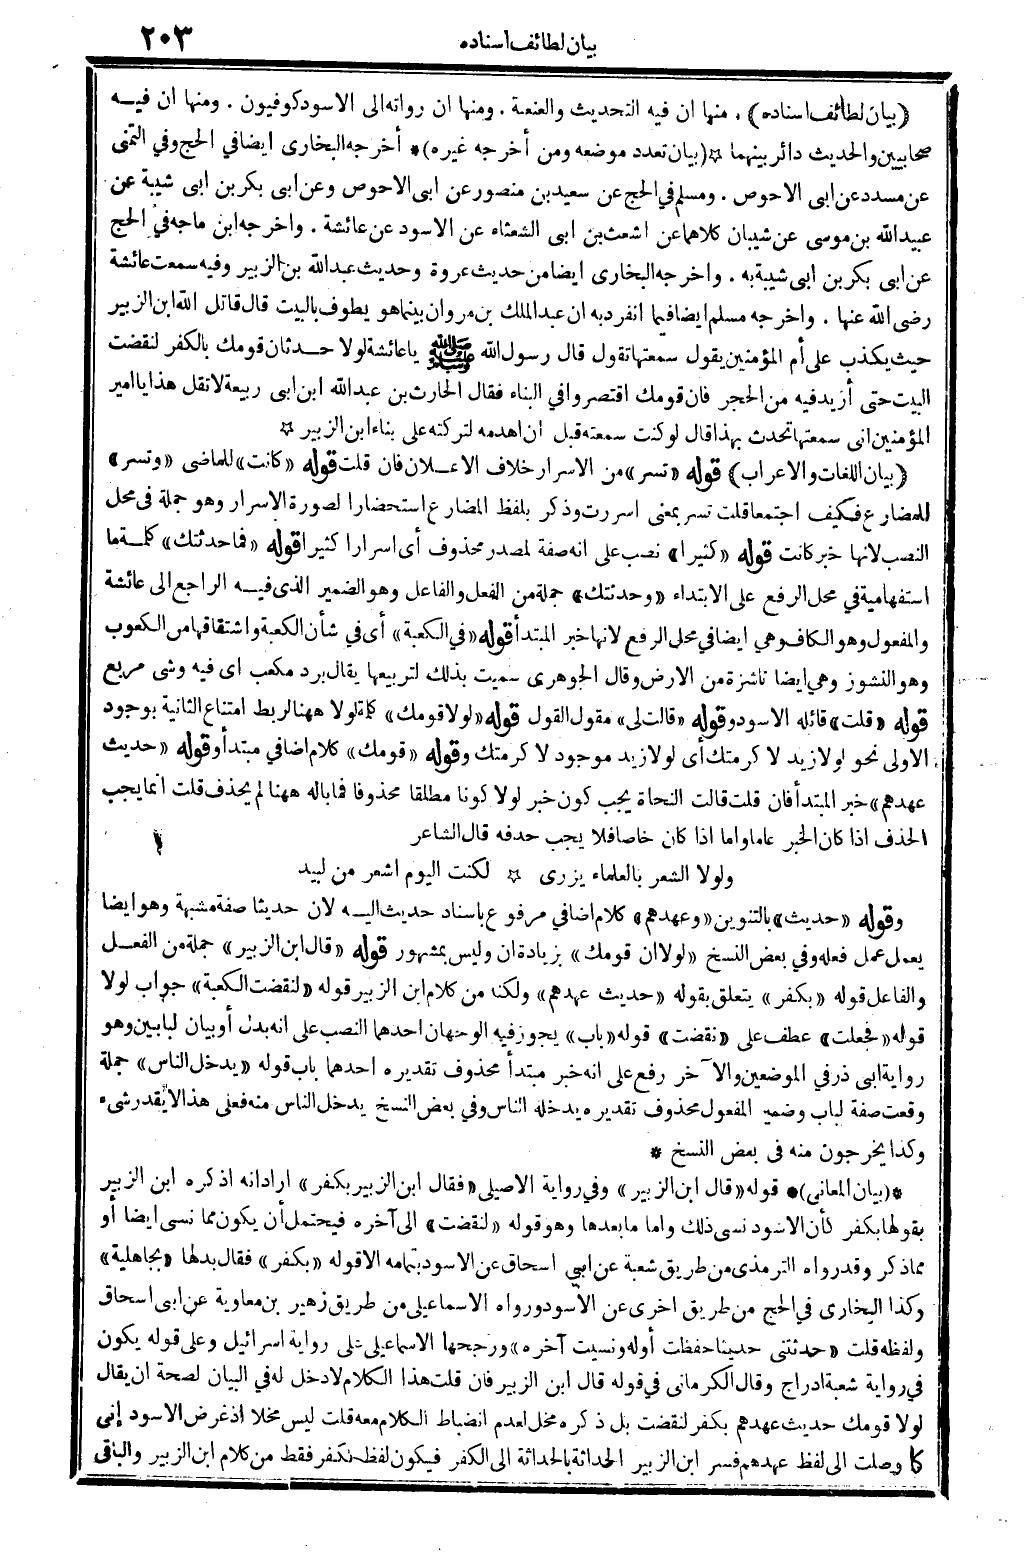 بيان لطائف اسناده
٢٠٣
(بيان لطائف اسناده) . منها ان فيه التحديث والعنعنة . ومنها ان رواته الى الاسود كوفيون . ومنها ان فيه
صحابيين والحديث دائر بينهما ☆ (بيان تعدد موضعه ومن أخرجه غيره) * أخرجه البخارى ايضا في الحج وفي التمنى
عن مسدد عن ابى الاحوص . ومسلم في الحج عن سعيد بن منصور عن ابى الاحوص وعن ابى بكر بن ابى شيبة عن
عبيد الله بن موسى عن شيبان كلاهما عن اشعث بن ابى الشعثاء عن الاسود عن عائشة . واخرجه ابن ماجه في الحج
عن ابى بكر بن ابى شيبة به . واخرجه البخارى ايضا من حديث عروة وحديث عبد الله بن الزبير وفيه سمعت عائشة
رضى الله عنها . واخرجه مسلم ايضا فيما انفرد به ان عبد الملك بن مروان بينما هو يطوف بالبيت قال قاتل الله ابن الزبير
حيث يكذب على أم المؤمنين يقول سمعتها تقول قال رسول الله ﷺ يا عائشة لولا حدثان قومك بالكفر لنقضت
البيت حتى أزيد فيه من الحجر فان قومك اقتصروا في البناء فقال الحارث بن عبد الله ابن ابى ربيعة لا تقل هذا يا امير
المؤمنين انى سمعتها تحدث بهذا قال لو كنت سمعته قبل ان اهدمه لتركته على بناء ابن الزبير ☆
(بيان اللغات والاعراب) قوله «تسر» من الاسرار خلاف الاعلان فان قلت قوله «كانت» للماضى «وتسر»
للمضارع فكيف اجتمعا قلت تسر بمعنى اسررت وذكر بلفظ المضارع استحضارا لصورة الاسرار وهو جملة فى محل
النصب لانها خبر كانت قوله «كثيرا» نصب على انه صفة لمصدر محذوف أى اسرارا كثيرا قوله «فما حدثتك» كلمة ما
استفهامية في محل الرفع على الابتداء «وحدثتك» جملة من الفعل والفاعل وهو الضمير الذى فيه الراجع الى عائشة
والمفعول وهو الكاف وهي ايضا في محل الرفع لانها خبر المبتدأ قوله «في الكعبة» أى في شأن الكعبة واشتقاقها من الكعوب
وهو النشوز وهي ايضا ناشزة من الارض وقال الجوهرى سميت بذلك لتربيعها يقال برد مكعب اى فيه وشى مربع
قوله «قلت» قائله الاسود وقوله «قالت لى» مقول القول قوله «لولا قومك» كلمة لولا ههنا لربط امتناع الثانية بوجود
الاولى نحو لولا زيد لا كرمتك أى لولا زيد موجود لا كرمتك وقوله «قومك» كلام اضافي مبتدأ وقوله «حديث
عهدهم» خبر المبتدأ فان قلت قالت النحاة يجب كون خبر لولا كونا مطلقا محذوفا فما باله ههنا لم يحذف قلت انما يجب
الحذف اذا كان الخبر عاما واما اذا كان خاصا فلا يجب حدفه قال الشاعر
ولولا الشعر بالعلماء يزرى ☆ لكنت اليوم اشعر من لبيد
وقوله «حديث» بالتنوين «وعهدهم» كلام اضافي مرفوع باسناد حديث اليه لان حديثا صفة مشبهة وهو ايضا
يعمل عمل فعله وفي بعض النسخ «لولا ان قومك» بزيادة ان وليس بمشهور قوله «قال ابن الزبير» جملة من الفعل
والفاعل قوله «بكفر» يتعلق بقوله «حديث عهدهم» ولكنه من كلام ابن الزبير قوله «لنقضت الكعبة» جواب لولا
قوله «فجعلت» عطف على «نقضت» قوله «باب» يجوز فيه الوجهان احدهما النصب على انه بدل أو بيان لبابين وهو
رواية ابى ذر في الموضعين والآخر رفع على انه خبر مبتدأ محذوف تقديره احدهما باب قوله «يدخل الناس» جملة
وقعت صفة لباب وضمير المفعول محذوف تقديره يدخله الناس وفي بعض النسخ يدخل الناس منه فعلى هذا لا يقدر شيء
وكذا يخرجون منه فى بعض النسخ *
* (بيان المعانى) * قوله «قال ابن الزبير» وفي رواية الاصيلى «فقال ابن الزبير بكفر» ارادانه اذ كره ابن الزبير
بقولها بكفر كأن الاسود نسى ذلك واما ما بعدها وهو قوله «لنقضت» الى آخره فيحتمل أن يكون مما نسى ايضا أو
مما ذكر وقد رواه الترمذى من طريق شعبة عن ابي اسحاق عن الاسود بتمامه الا قوله «بكفر» فقال بدلها «بجاهلية»
وكذا البخارى في الحج من طريق اخرى عن الاسود ورواه الاسماعيلى من طريق زهير بن معاوية عن ابى اسحاق
ولفظه قلت «حدثتنى حديثا حفظت أوله ونسيت آخره» ورجحها الاسماعيلى على رواية اسرائيل وعلى قوله يكون
في رواية شعبة ادراج وقال الكرمانى في قوله قال ابن الزبير فان قلت هذا الكلام لا دخل له في البيان لصحة ان يقال
لولا قومك حديث عهدهم بكفر لنقضت بل ذكره مخل لعدم انضباط الكلام معه قلت ليس مخلا اذ غرض الاسود إنى
كما وصلت الى لفظ عهدهم فسر ابن الزبير الحداثة بالحداثة الى الكفر فيكون لفظ بكفر فقط من كلام ابن الزبير والباقى